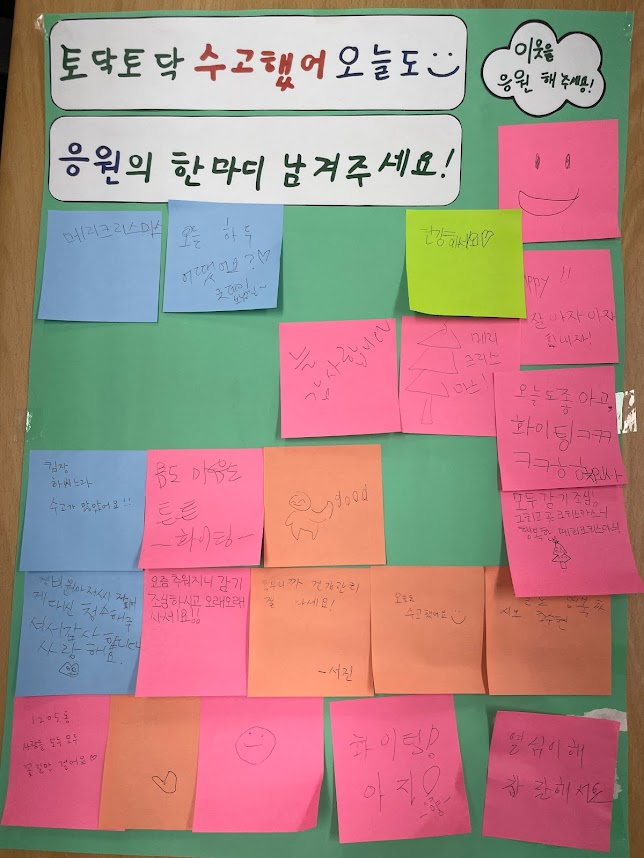 토닥토닥 수고했어 오늘도
이웃을
응원 해 주세용!
응원의 한마디 남겨주세요!
메리크리스마스
오늘 하루
어땠어요?♡
건강하세요♡
PPY !!
아자 아자
힘내자!
늘
감사합니다
메리
크리스
마스!
오늘도 좋아고
화이팅ㅋㅋㅋ
ㅋㅋㅎㅎ
김장
하시느라
수고가 많았어요!!
이웃도
튼튼
-화이팅-
good
모두 감기 조심!!
그리고
메리크리스마스
경비원아저씨
제대신 청소해주
셔서 감사 합니다
사랑 해요.
요즘 추워지니 감기
조심하시고 오래오래
사세요!!
건강관리
잘 하세요!
-서진
오늘도
수고했어요
1205동
사람들 모두 모두
꽃길만 걸어요♡
화이팅!
아자!
열심히해
잘 한해서요